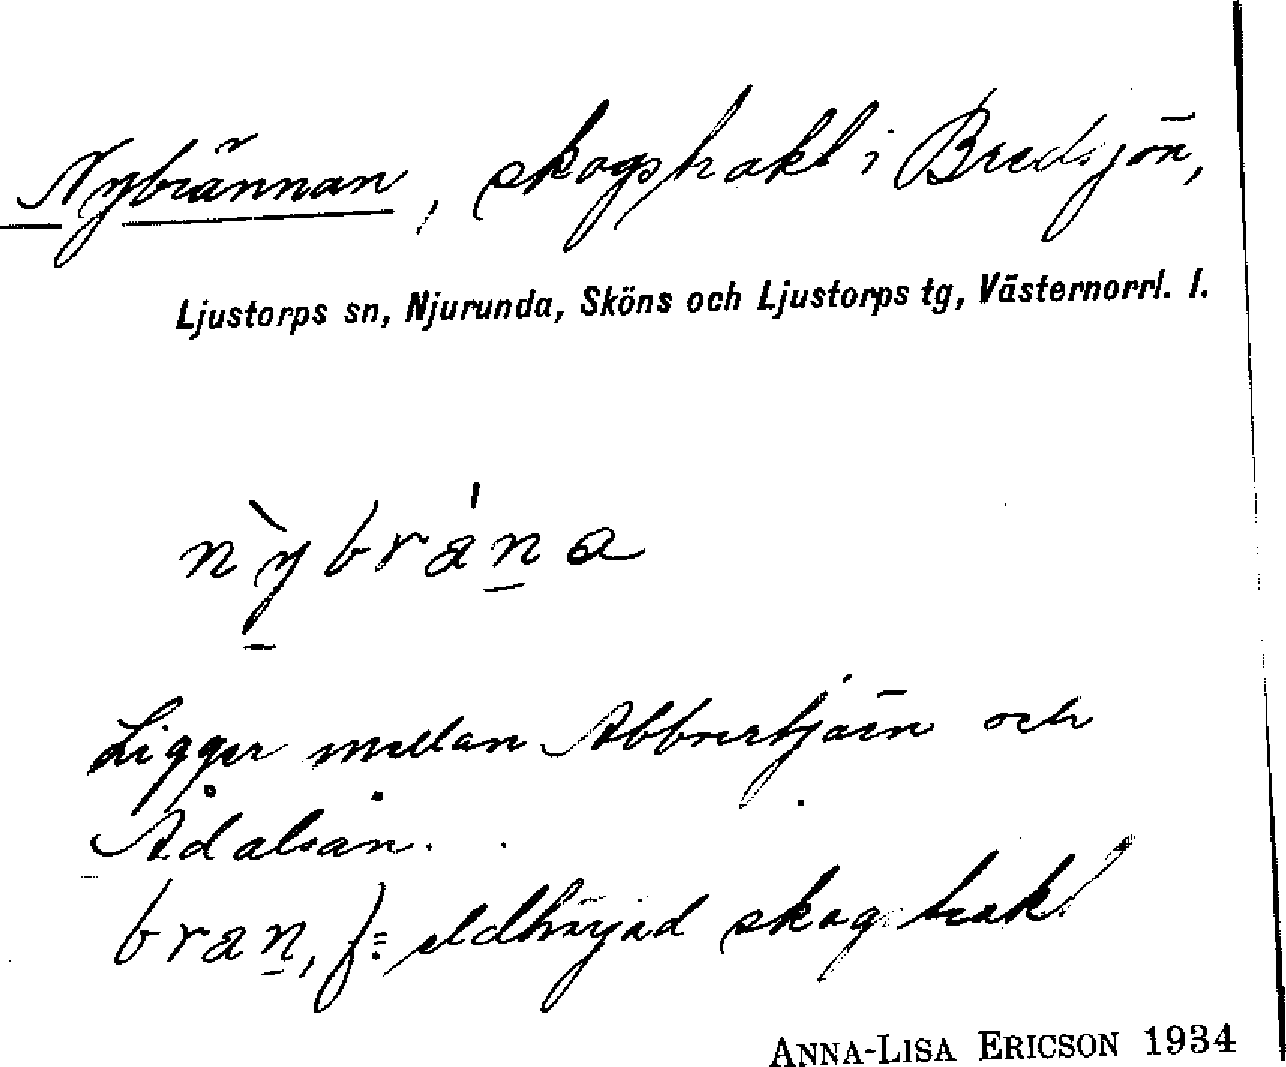 Nybrännan, skogstrakt i Bredsjön,
Ljustorps sn, Njurunda, Sköns och Ljustorps tg, Västernorrl. l.
nỳbrána
Ligger mellan Abborrtjärn och
Ådalsån.
bran, f = eldhärjad skogstrakt
ANNA-LISA ERICSON 1934